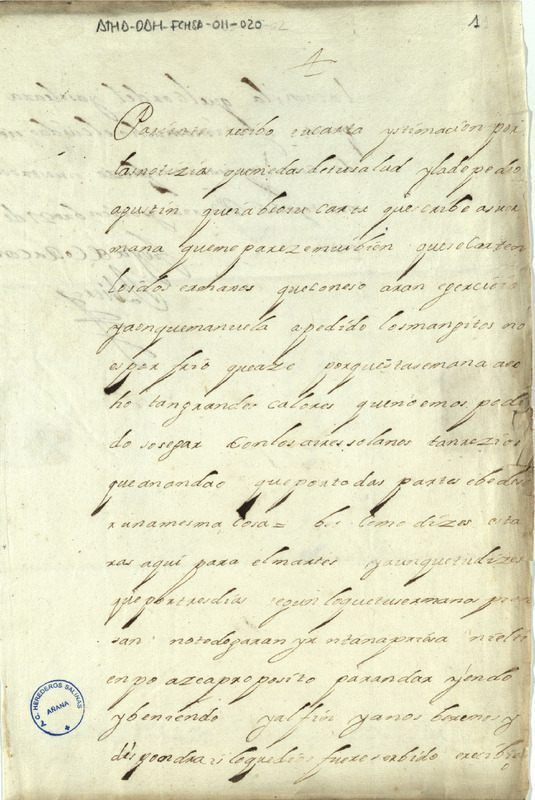 ATHA-DAH-FCHSA-011-020
1
Pariente recibo tu carta y stimacion por
las notizias que me das de tu salud y la de pedro
agustin que ia be otra carta que scribe a su er
mana que me pareze mui bien que se carteen
los dos ermanos que con eso aran exercicio
y aenque manuela a pedido los mangitos no
es por frio que aze porque sta semana a ec
ho tan grandes calores que no emos podi
do sosegar con los aires solanos tan rezios
que an andado que por todas partes ebe
r una mesma cosa = bes como dizes esta
ras aqui para el martes y aunque tu dizes
que por tres dias segun lo que tus ermanas pien
san no te dejaran yr n tan aprisa ni el ti
enpo aze a proposito para andar yendo
y beniendo y al fin ya nos beremos y
dispondra i lo que dios fuere serbido
A. C. HEREDEROS SALINAS
ARANA